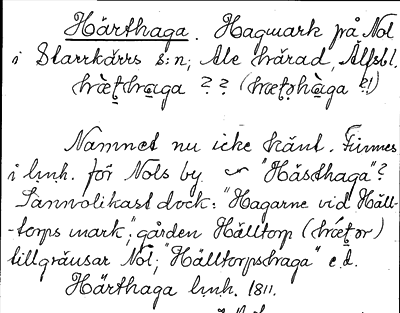 Härthaga. Hagmark på Nol
i Starrkärrs s:n; Ale härad, Älfsbl.
hæ̀thaga ? ? (hætəhàga ?!)
Namnet nu icke känt. Finnes
i lmh. för Nols by. ~ "Hästhaga"?
Sannolikast dock: "Hagarne vid Häll-
-torps mark"; gården Hälltorp (hǽtər)
tillgränsar Nol; "Hälltorpshaga" e.d.
Härthaga lmh. 1811.